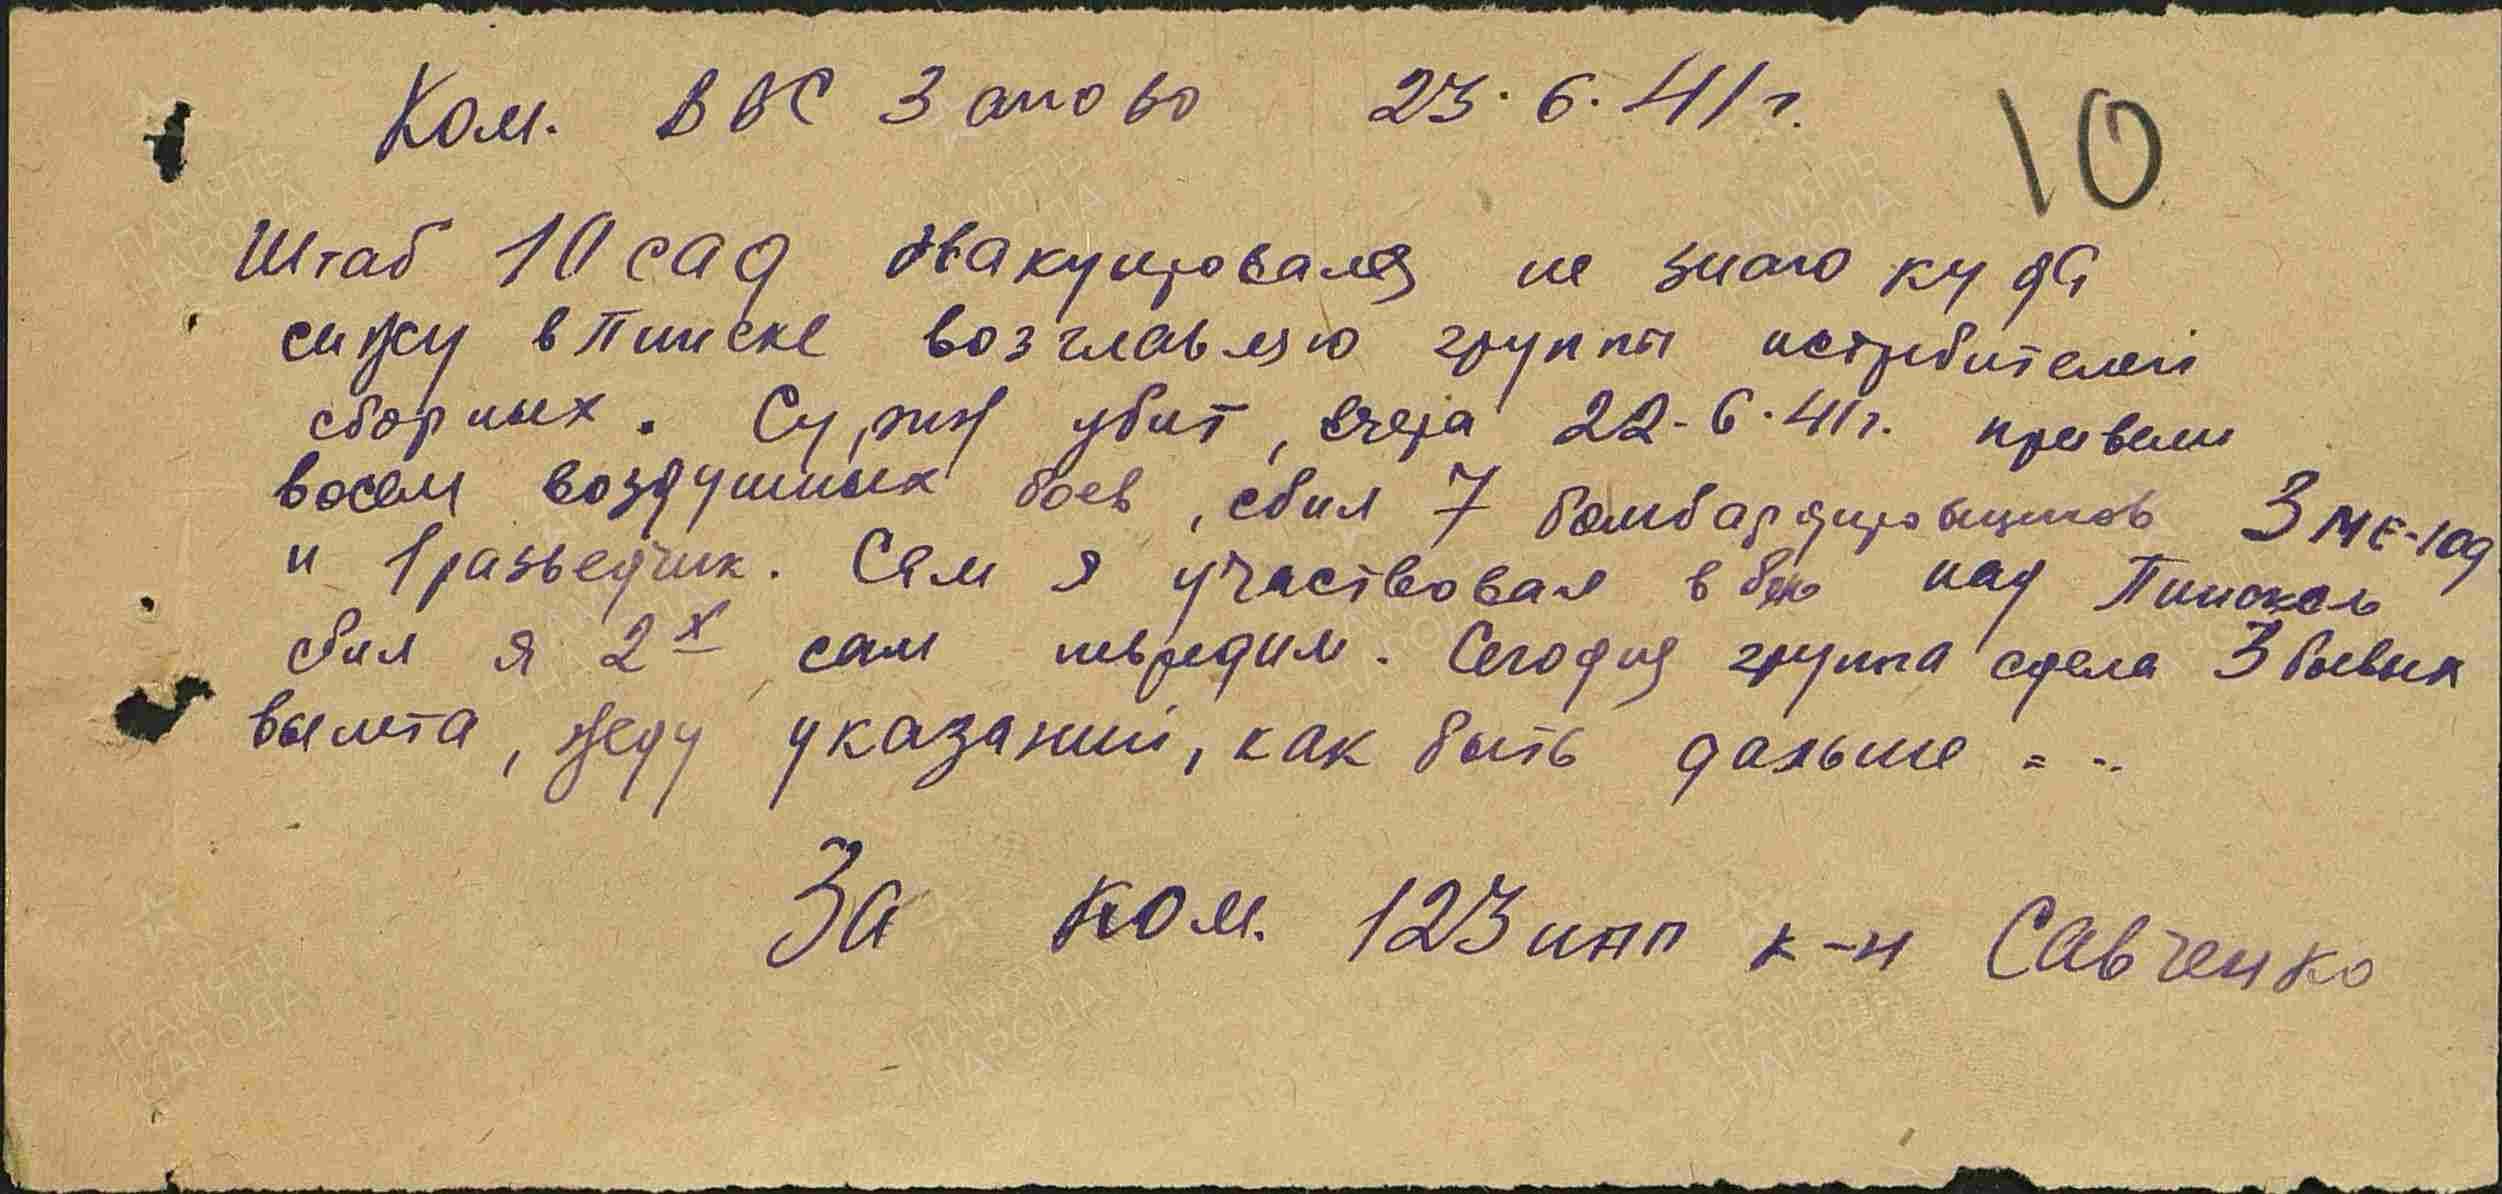 Ком. ВВС Запово 23.6.41г.
10
Штаб 10 сад эвакуировался не знаю куда
сижу в Пинске возглавляю группы истребителей
сборных. Сурин убит, вчера 22-6.41г. провели
восем воздушных боев, сбил 7 бомбардировщиков 3 МЕ-109
и 1 разведчик. Сам я участвовал в бою над Пинском
сбил я 2х сам невредим. Сегодня группа сдела 3 боевых
вылета, жду указаний, как быть дальше
За ком. 123 иап к-н Савченко
ПАМЯТЬ
НАРОДА